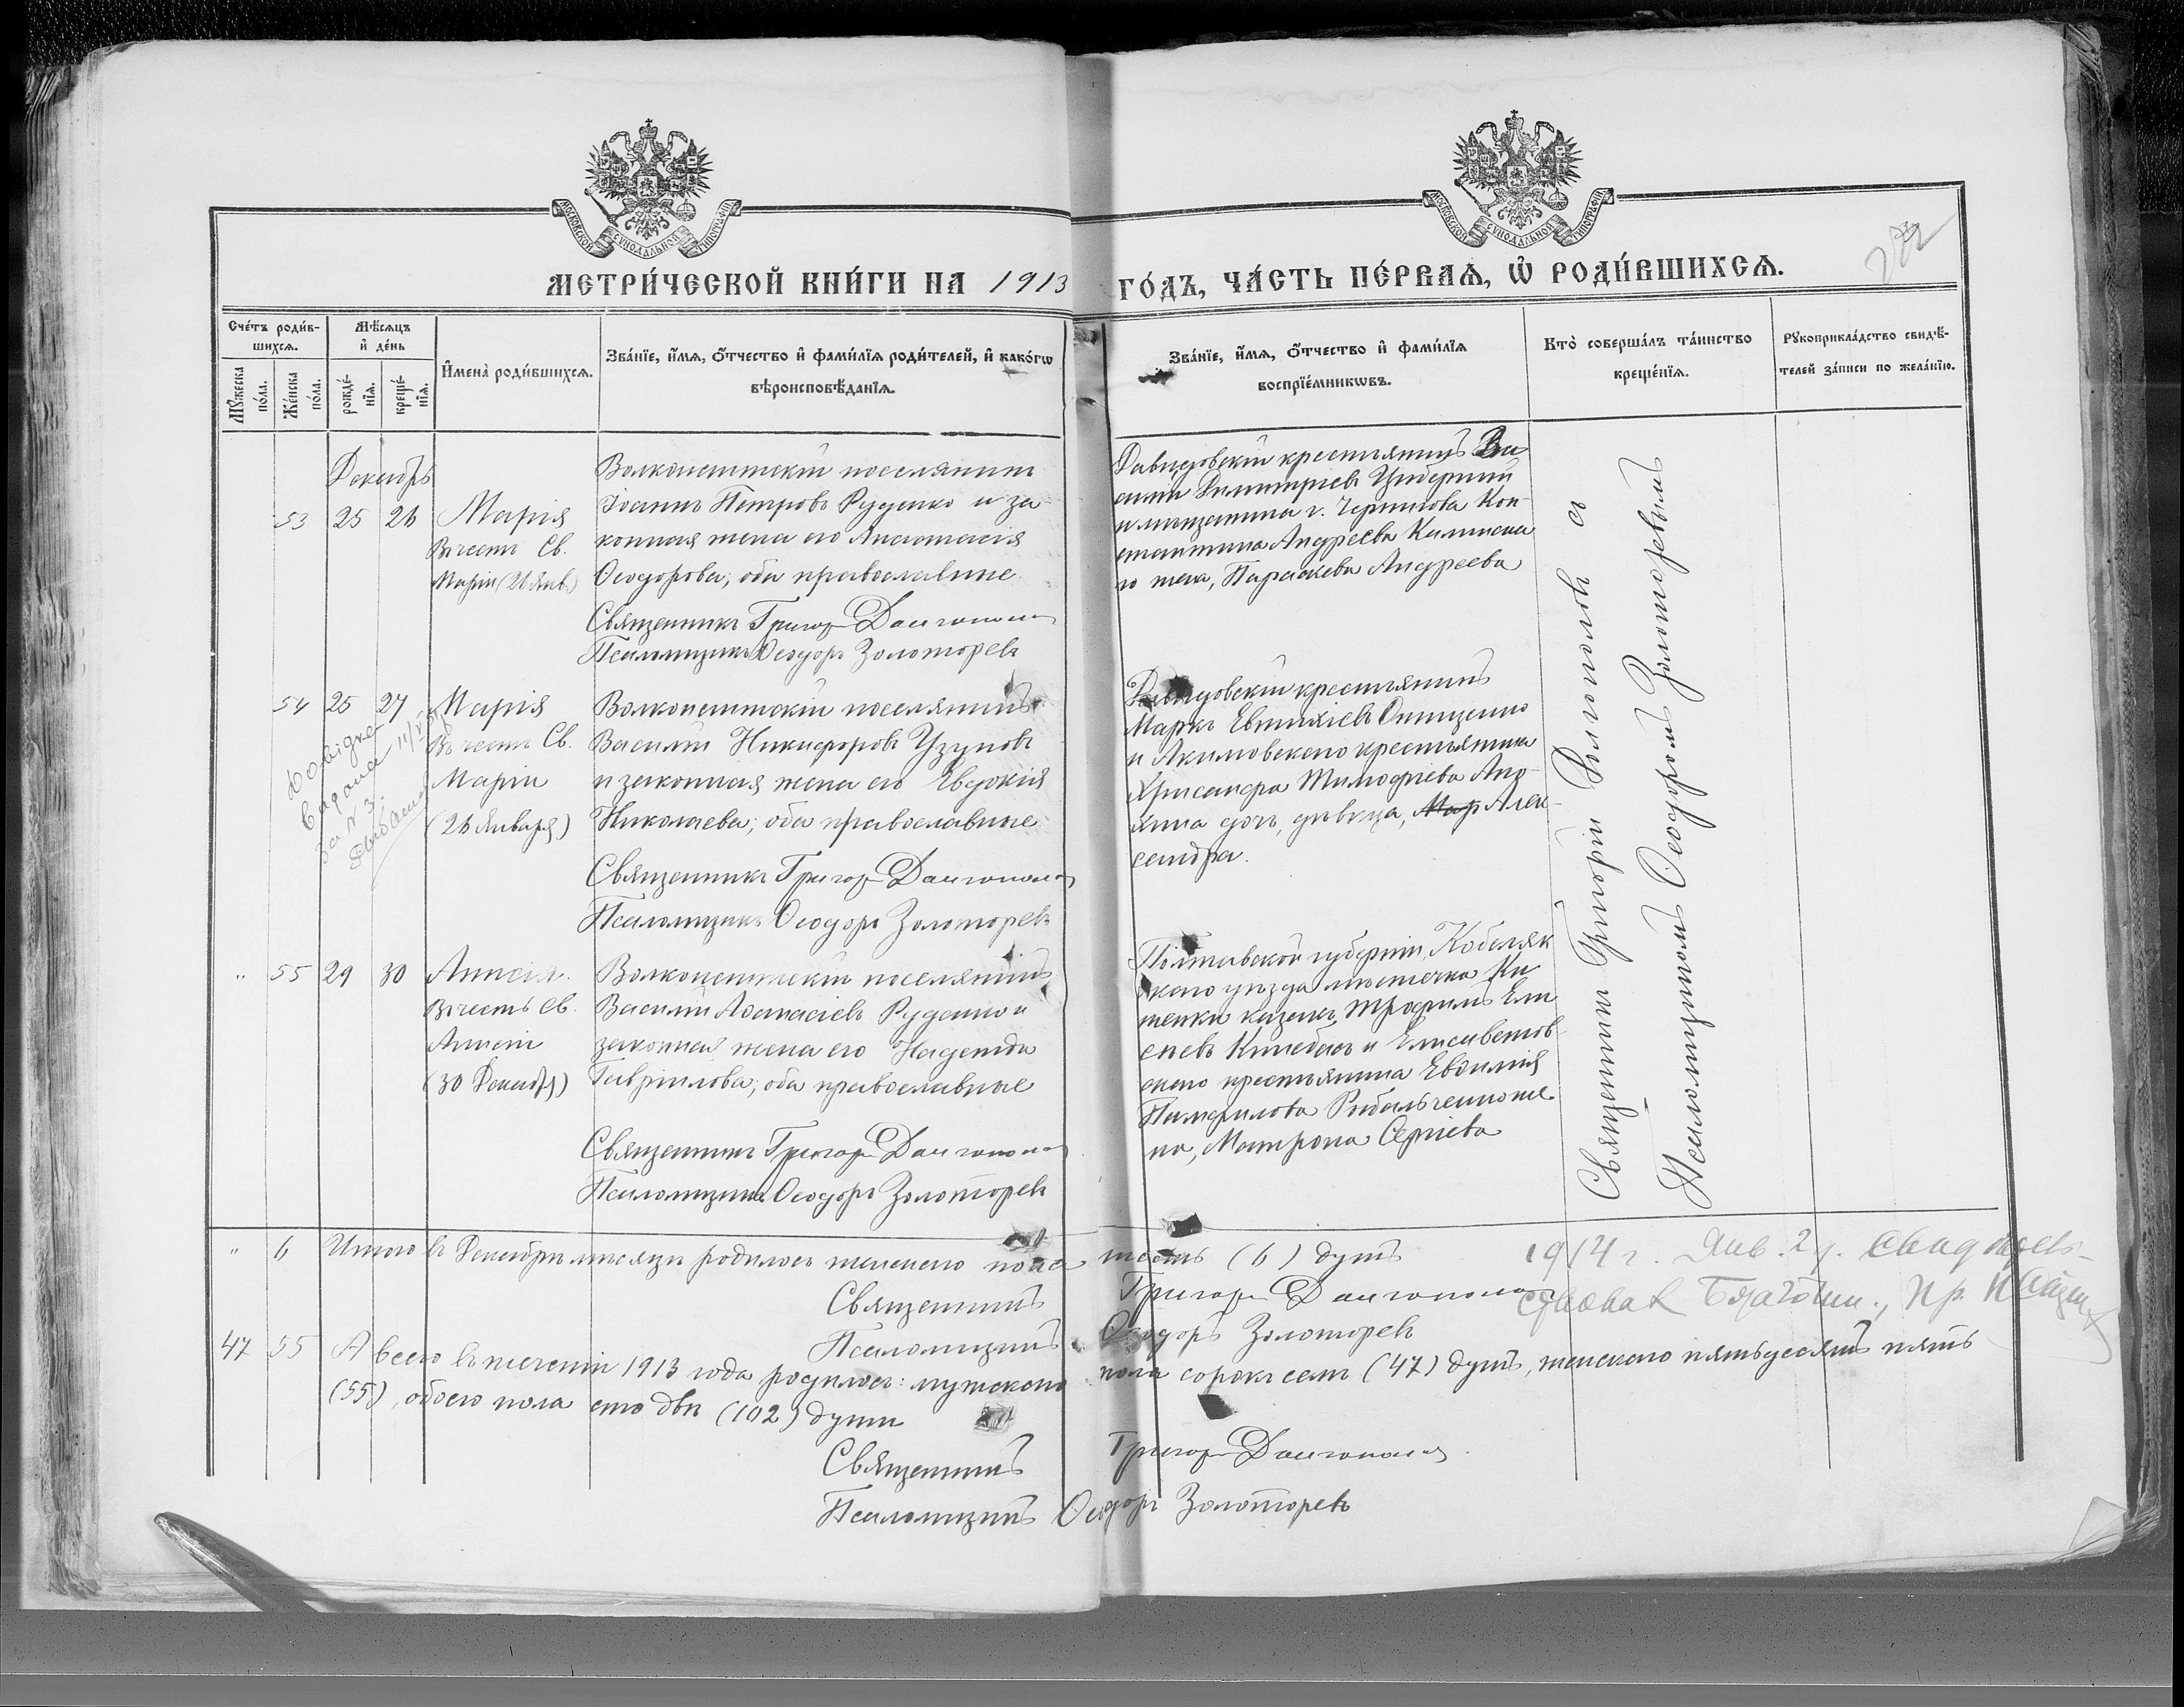 МОСКОВСКОЙ СѴНОДАЛЬНОЙ ТИПОГРАФІИ
МОСКОВСКОЙ СѴНОДАЛЬНОЙ ТИПОГРАФІИ
МЕТРИ́ЧЕСКОЙ КНИ́ГИ НА 1913 ГО́ДЪ, ЧА́СТЬ ПЕ́РВАѦ, Ѡ҆ РОДИ́ВШИХСѦ.
Сче́тъ роди́в-
шихсѧ.
Мѣ́сѧцъ
и҆ де́нь
Мꙋ́жеска
по́ла.
Же́нска
по́ла.
рожде́-
нїѧ.
креще́-
нїѧ.
И҆мена̀ роди́вшихсѧ.
Зва́нїе, и҆́мѧ, ѻ҆́тчество и҆ фами́лїѧ роди́телей, и҆ како́гѡ
вѣроисповѣ́данїѧ.
Зва́нїе, и҆́мѧ, ѻ҆́тчество и҆ фами́лїѧ
воспрїе́мникѡвъ.
Кто̀ соверша́лъ та́инство
креще́нїѧ.
Рꙋкоприкла́дство свидѣ́-
телей за́писи по жела́нїю.
Декабрь
53 25 26 Марія
Въ честь Св.
Маріи (26 Янв.)
Волконештскій поселянинъ
Іоаннъ Петровъ Руденко и за-
конная жена его Анастасія
Ѳеодорова, оба православные
Священникъ Григор Долгополов
Псаломщикъ Ѳеодоръ Золоторевъ
Давидовскій крестьянинъ Ва-
силій Димитріевъ
и мѣщанина г. Чернигова Кон-
стантина Андреева
го жена, Параскева Андреева
54 25 27 Марія
Въ честь Св.
Маріи
(26 Января)
Волконештскій поселянинъ
Василій Никифоровъ Узуновъ
и законная жена его Евдокія
Николаева, оба православные
Священникъ Григор Долгополов
Псаломщикъ Ѳеодоръ Золоторевъ
Давидовскій крестьянинъ
Маркъ Евтихіевъ Онищенко
и Акимовскаго крестьянина
Хрисанфа Тимофіева
дочь, дѣвица, Мар Алек-
сандра.
за №3.
" 55 29 30 Анисія
Въ честь Св.
Анисіи
(30 Декабря)
Волконештскій поселянинъ
Василій Аѳанасіевъ Руденко и
законная жена его Надежда
Гавріилова, оба православные
Священникъ Григор Долгополов
Псаломщикъ Ѳеодоръ Золоторевъ
Полтавской губерніи, Кобеляк
скаго уѣзда мѣстечка Ки
тенки казакъ Трофимъ Ели
сеевъ и Елисаветов
скаго крестьянина Евѳимія
Памфилова Рибальченко же-
на, Матрона Сергіева
Священникъ Григорій Долгополовъ съ
Псаломщикомъ Ѳеодоромъ Золоторевымъ
" 6 Итого въ Декабрѣ мѣсяцѣ родилось женскаго пола шесть (6) душъ
Священникъ Григор Долгополов
Псаломщикъ Ѳеодоръ Золоторевъ
1914 г. Янв. 2 д.
47 55 А всего въ теченіи 1913 года родилось: мужескаго пола сорокъ семь (47) душъ, женскаго пятьдесятъ пять
(55), обоего пола сто двѣ (102) души
Священникъ Григор Долгополов
Псаломщикъ Ѳеодоръ Золоторевъ